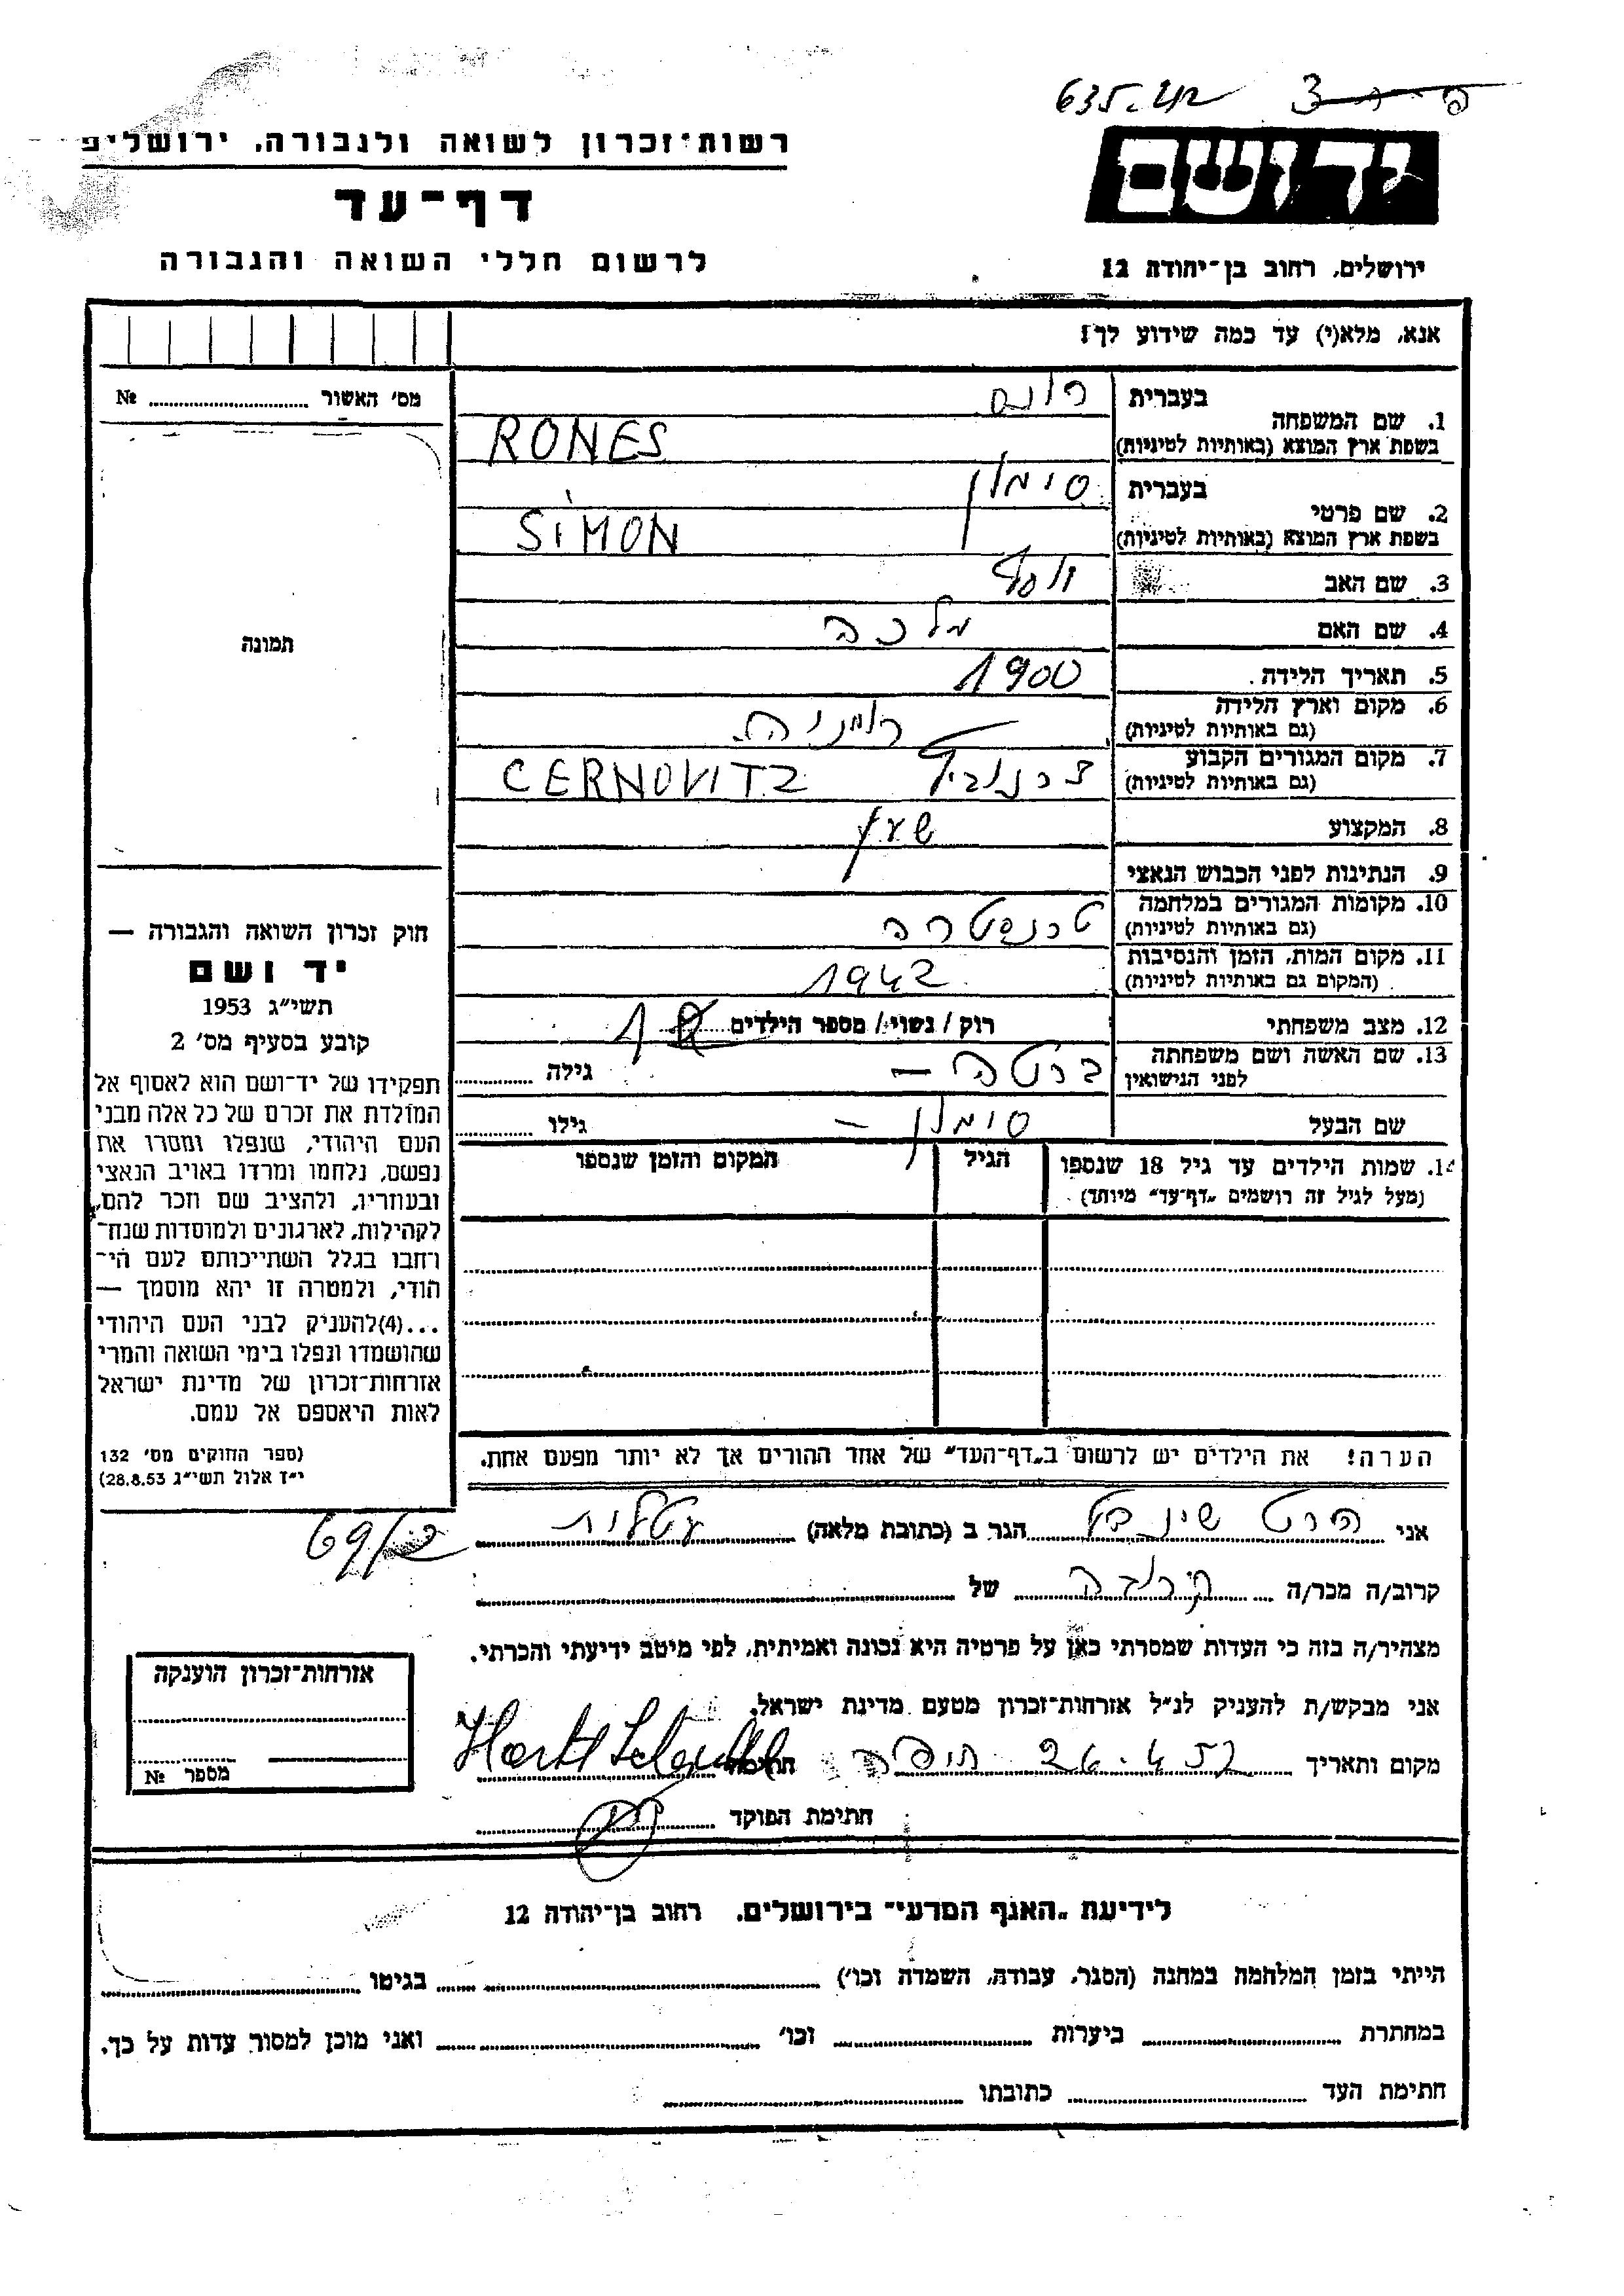 635.42
רשות־זכרון לשואה ולגבורה, ירושלים
דף־עד
לרשום חללי השואה והגבורה
יד ושם
ירושלים, רחוב בן־יהודה 12
אנא, מלא(י) עד כמה שידוע לך!
מס׳ האשור № 
1. שם המשפחה בעברית רונס
בשפת ארץ המוצא (באותיות לטיניות) RONES
2. שם פרטי בעברית סימון
בשפת ארץ המוצא (באותיות לטיניות) SIMON
3. שם האב יוסף
4. שם האם מלכה
5. תאריך הלידה 1900
6. מקום וארץ הלידה (גם באותיות לטיניות) רומניה
7. מקום המגורים הקבוע (גם באותיות לטיניות) CERNOVITZ
8. המקצוע שען
9. הנתינות לפני הכבוש הנאצי
10. מקומות המגורים במלחמה (גם באותיות לטיניות)
11. מקום המות, הזמן והנסיבות (המקום גם באותיות לטיניות) 1942
12. מצב משפחתי רוק / נשוי / מספר הילדים 1
13. שם האשה ושם משפחתה לפני הנישואין ברטה — גילה
שם הבעל סימון — גילו
14. שמות הילדים עד גיל 18 שנספו (מעל לגיל זה רושמים „דף־עד״ מיוחד)
הגיל
המקום והזמן שנספו
תמונה
חוק זכרון השואה והגבורה —
יד ושם
תשי״ג 1953
קובע בסעיף מס׳ 2
תפקידו של יד־ושם הוא לאסוף אל
המולדת את זכרם של כל אלה מבני
העם היהודי, שנפלו ומסרו את
נפשם, נלחמו ומרדו באויב הנאצי
ובעוזריו, ולהציב שם וזכר להם,
לקהילות, לארגונים ולמוסדות שנח־
רחבו בגלל השתייכותם לעם הי־
הודי, ולמטרה זו יהא מוסמך —
...(4)להעניק לבני העם היהודי
שהושמדו ונפלו בימי השואה והמרי
אזרחות־זכרון של מדינת ישראל
לאות היאספם אל עמם.
(ספר החוקים מס׳ 132
י״ז אלול תשי״ג 28.8.53)
הערה! את הילדים יש לרשום ב„דף־העד״ של אחד ההורים אך לא יותר מפעם אחת.
69/12
אני הרט הגר ב (כתובת מלאה) עטלית
קרוב/ה מכר/ה קרובה של
מצהיר/ה בזה כי העדות שמסרתי כאן על פרטיה היא נכונה ואמיתית, לפי מיטב ידיעתי והכרתי.
אני מבקש/ת להעניק לנ״ל אזרחות־זכרון מטעם מדינת ישראל.
מקום ותאריך 26.4.57 חיפה חתימה
חתימת הפוקד
אזרחות־זכרון הוענקה
מספר №
לידיעת „האגף המדעי״ בירושלים, רחוב בן־יהודה 12
הייתי בזמן המלחמה במחנה (הסגר, עבודה, השמדה וכו׳) בגיטו
במחתרת ביערות וכו׳ ואני מוכן למסור עדות על כך.
חתימת העד כתובתו